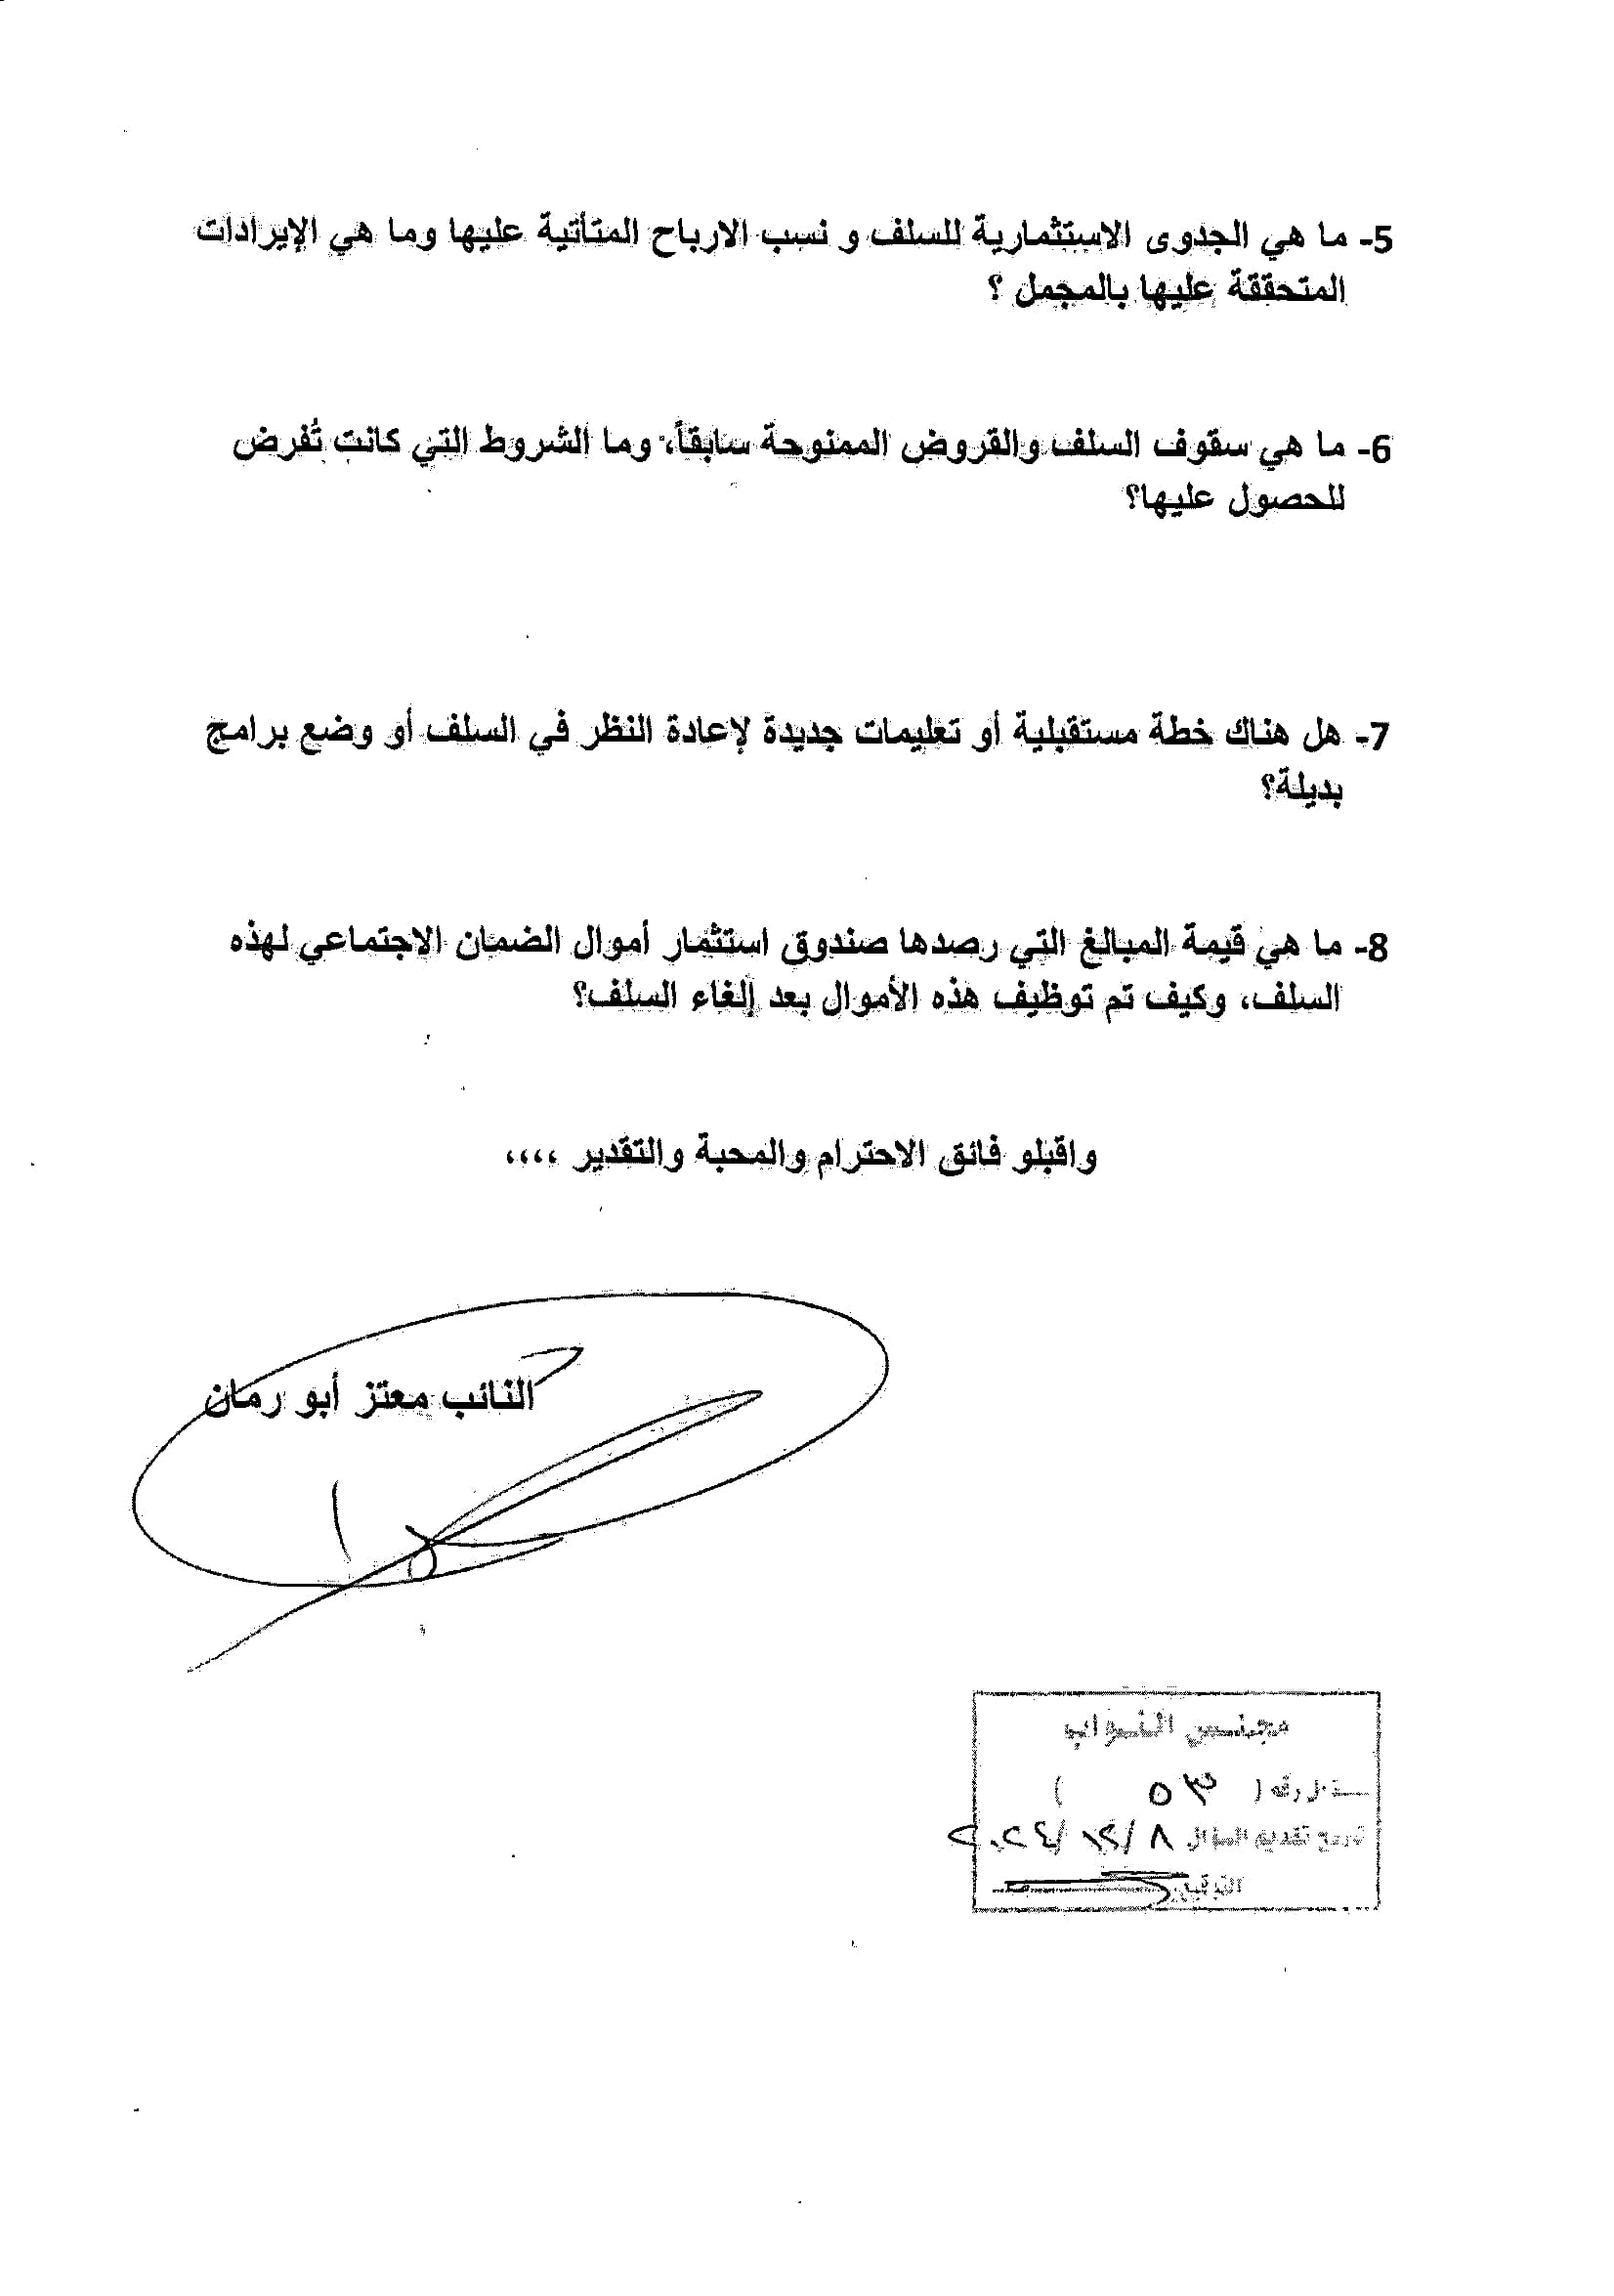 5- ما هي الجدوى الاستثمارية للسلف و نسب الارباح المتأتية عليها وما هي الإيرادات
المتحققة عليها بالمجمل ؟
6- ما هي سقوف السلف والقروض الممنوحة سابقاً، وما الشروط التي كانت تُفرض
للحصول عليها؟
7- هل هناك خطة مستقبلية أو تعليمات جديدة لإعادة النظر في السلف أو وضع برامج
بديلة؟
8- ما هي قيمة المبالغ التي رصدها صندوق استثمار أموال الضمان الاجتماعي لهذه
السلف، وكيف تم توظيف هذه الأموال بعد إلغاء السلف؟
واقبلو فائق الاحترام والمحبة والتقدير ،،،،
النائب معتز أبو رمان
مجلس النواب
سؤال رقم ( ٥٣ )
تاريخ تقديم السؤال ٨/١٢/٢٠٢٤
التوقيع